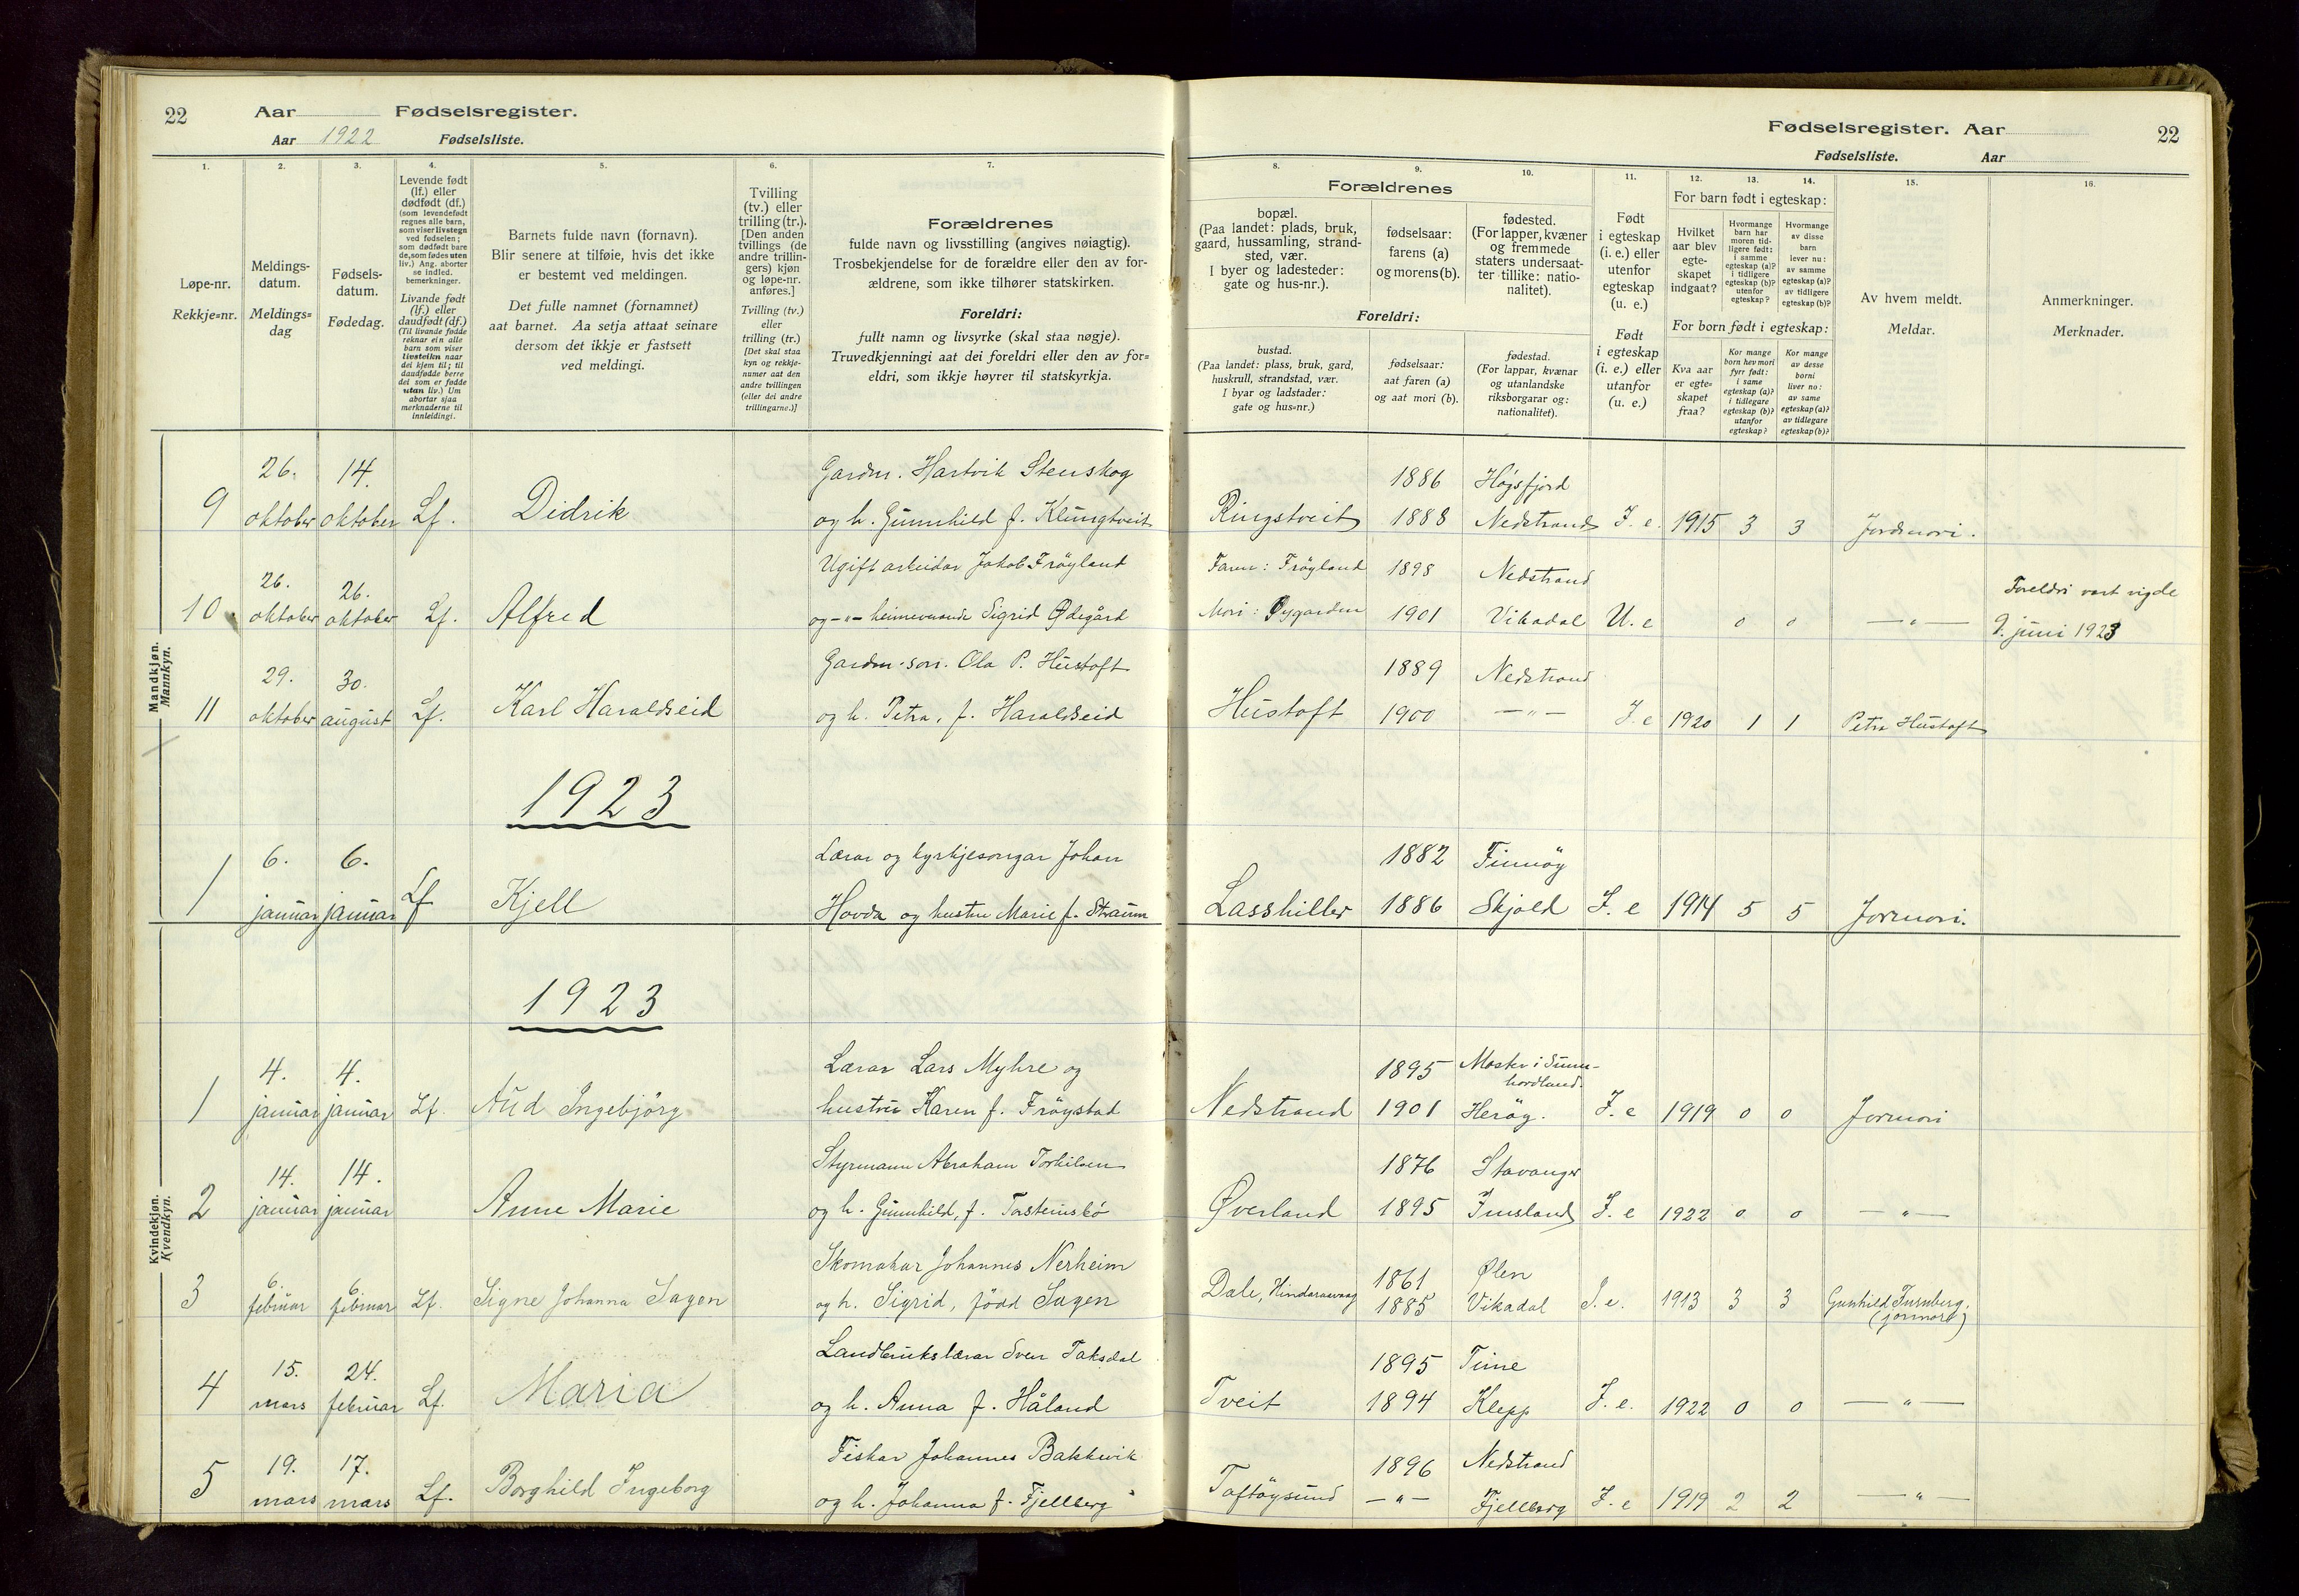 22
Aar
Fødselsregister.
Aar 1922
Fødselsliste.
Fødselsregister. Aar
22
Fødselsliste.
Aar
1.
2.
3.
4.
5.
6.
7.
8.
9.
10.
11.
12.
13.
14.
15.
16.
Løpe-nr.
Rekkje=nr.
Meldings-
datum.
Meldings=
dag
Fødsels-
datum.
Fødedag.
Levende født
(lf.) eller
dødfødt (df.)
(som levendefødt
regnes alle barn,
som viser livstegn
ved fødselen;
som dødfødt bare
de, som fødes uten
liv.) Ang. aborter
se indled.
bemerkninger.
Livande født
(lf.) eller
daudfødt (df.)
(Til livande fødde
reknar ein alle
barn som viser
livsteikn naar
dei kjem til; til
daudfødde berre
dei som er fødde
utan liv.) Um
abortar sjaa
merknaderne til
innleidingi.
Barnets fulde navn (fornavn).
Blir senere at tilføie, hvis det ikke
er bestemt ved meldingen.
Det fulle namnet (fornamnet)
aat barnet. Aa setja attaat seinare
dersom det ikkje er fastsett
ved meldingi.
Tvilling
(tv.) eller
trilling (tr.).
[Den anden
tvillings (de
andre trillin-
gers) kjøn
og løpe-nr.
anføres.]
Tvilling (tv.)
eller
trilling (tr.)
[Det skal staa
kyn og rekkje-
numer aat den
andre tvillingen
(eller dei andre
trillingarne.)]
Forældrenes
fulde navn og livsstilling (angives nøiagtig).
Trosbekjendelse for de forældre eller den av for-
ældrene, som ikke tilhører statskirken.
Foreldri:
fullt namn og livsyrke (skal staa nøgje).
Truvedkjenningi aat dei foreldri eller den av for=
eldri, som ikkje høyrer til statskyrkja.
Forældrenes
bopæl.
(Paa landet: plads, bruk,
gaard, hussamling, strand-
sted, vær.
I byer og ladesteder:
gate og hus-nr.).
fødselsaar:
farens (a)
og morens (b).
fødested.
(For lapper, kvæner
og fremmede
staters undersaat-
ter tillike: natio-
nalitet).
Foreldri:
bustad.
(Paa landet: plass, bruk, gard,
huskrull, strandstad, vær.
I byar og ladstader:
gate og hus=nr.)
fødselsaar:
aat faren (a)
og aat mori (b).
fødestad.
(For lappar, kvænar
og utanlandske
riksborgarar og:
nationalitet).
Født
i egteskap
(i. e.) eller
utenfor
egteskap
(u. e.)
Født
i egteskap
(i. e.) eller
utanfor
(u. e.)
For barn født i egteskap:
Hvilket
aar blev
egte-
skapet
indgaat?
Hvormange
barn har
moren tid-
ligere født:
i samme
egteskap (a)?
i tidligere
egteskap (b)?
utenfor
egteskap?
Hvormange
av disse
barn
lever nu:
av samme
egteskap (a)?
av tidligere
egteskap (b)?
For born født i egteskap:
Kva aar
er egte=
skapet
fraa?
Kor mange
born hev mori
fyrr født:
i same
egteskap (a)?
i tidlegare
egteskap (b)?
utanfor
egteskap?
Kor mange
av desse
borni
liver no:
av same
egteskap (a)?
av tidlegare
egteskap (b)?
Av hvem meldt.
Meldar.
Anmerkninger.
Merknader.
Mandkjøn.
Mannkyn.
9 26. oktober 14. oktober Lf. Didrik
Gardm. Hartvik Stenskog
og h. Gunnhild f. Klungtveit
Ringstveit 1886 Høgsfjord
1888 Nedstrand I. e. 1915 3 3 Jordmori.
10. 26. oktober 26. oktober Lf. Alfred
Ugift arbeidar Jakob Frøyland
og -"- heimeverande Sigrid Ødegård
Faren: Frøyland 1898 Nedstrand
Mori: Øygarden 1901 Vikadal U. e 0 0 -"-
Foreldri vart vigde
9. juni 1923
11 29. oktober 30. august Lf. Karl Haraldseid
Gardm.son. Ola P. Hustoft
og h. Petra, f. Haraldseid
Hustoft 1889 Nedstrand
1900 -"- I. e 1920 1 1 Petra Hustoft
1923
1 6. januar 6. januar Lf Kjell
Lærar og kyrkjesongar Johan
Hovda og hustru Marie f. Straum
Lasshiller 1882 Finnøy
1886 Skjold I. e 1914 5 5 Jormori.
Kvindekjøn.
Kvendkyn.
1923
1 4. januar 4. januar Lf. Aud Ingebjörg
Lærar Lars Myhre og
hustru Karen f. Frøystad
Nedstrand 1895 Moster i Sunn-
hordland.
1901 Herøy. I. e 1919 0 0 Jormori
2 14. januar 14. januar Anne Marie
Styrmann Abraham Torkilsen
og h. Gunnhild, f. Torsteinsbø
Øverland 1876 Stavanger
1895 Imsland I. e 1922 0 0 -"-
3 6. februar 6. februar Lf. Signe Johanna Sagen
Skomakar Johannes Nerheim
og h. Sigrid, född Sagen
Dale, Hindaraavaag 1861 Ølen
1885 Vikadal I. e. 1913 3 3 Gunhild Turnberg.
(jormor)
4 15. mars 24. februar Lf. Maria
Landbrukslærar Sven Taksdal
og h. Anna f. Håland
Tveit 1895 Time
1894 Klepp I. e. 1922 0 0 -"-
5 19. mars 17. mars Lf. Borghild Ingeborg
Fiskar Johannes Bakkevik
og h. Johanna f. Fjellberg
Toftøysund 1896 Nedstrand
-"- Fjellberg I. e 1919 2 2 -"-